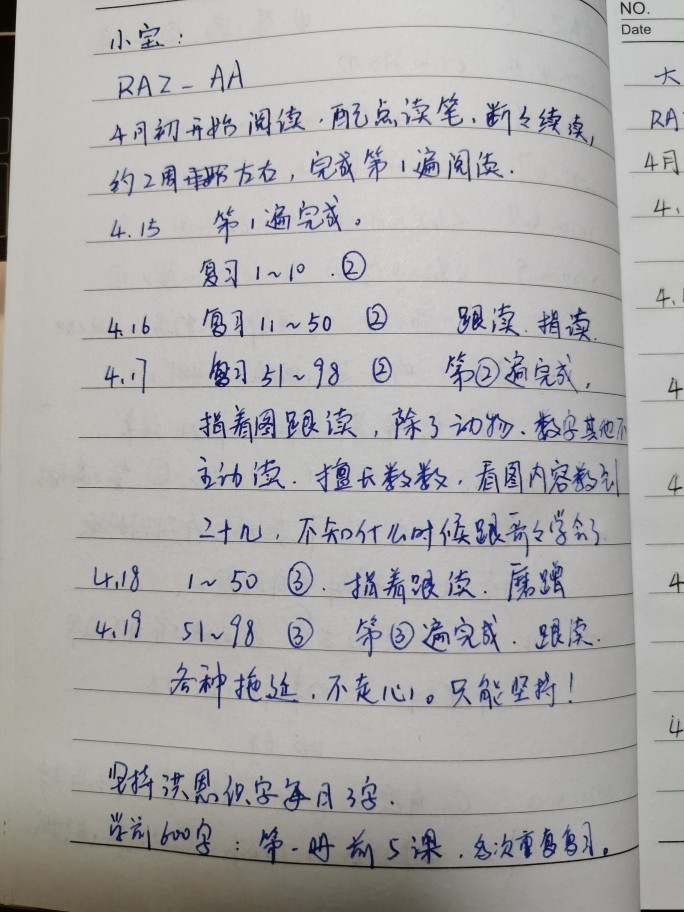 小宝：
RAZ-AA
4月初开始阅读，配点读笔，断々续读，
约2周左右，完成第1遍阅读．
4.15 第1遍完成。
复习1~10．②
4.16 复习11~50 ② 跟读．指读．
4.17 复习51~98 ② 第②遍完成，
指着图跟读，除了动物、数字其他不
主动读．擅长数数，看图内容数到
二十九，不知什么时候跟哥々学会了
4.18 1~50 ③．指着跟读．磨蹭
4.19 51~98 ③ 第③遍完成．跟读．
各种拖延，不走心。只能坚持！
坚持洪恩识字每日3字．
学前600字：第一册前5课，多次重复复习。
NO.
Date
大
RA
4月
4.
4.
4
4
4
4